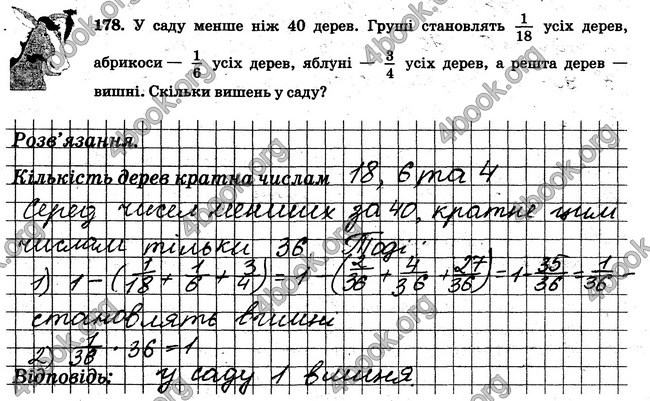 178. У саду менше ніж 40 дерев. Груші становлять 1/18 усіх дерев,
абрикоси — 1/6 усіх дерев, яблуні — 3/4 усіх дерев, а решта дерев —
вишні. Скільки вишень у саду?
Розв'язання.
Кількість дерев кратна числам 18, 6 та 4
Серед чисел менших за 40, кратне цим
числам тільки 36. Тоді:
1) 1 - (1/18 + 1/6 + 3/4) = 1 - (2/36 + 4/36 + 27/36) = 1 - 35/36 = 1/36 -
становлять вишні
2) 1/36 · 36 = 1
Відповідь: у саду 1 вишня.
4book.org